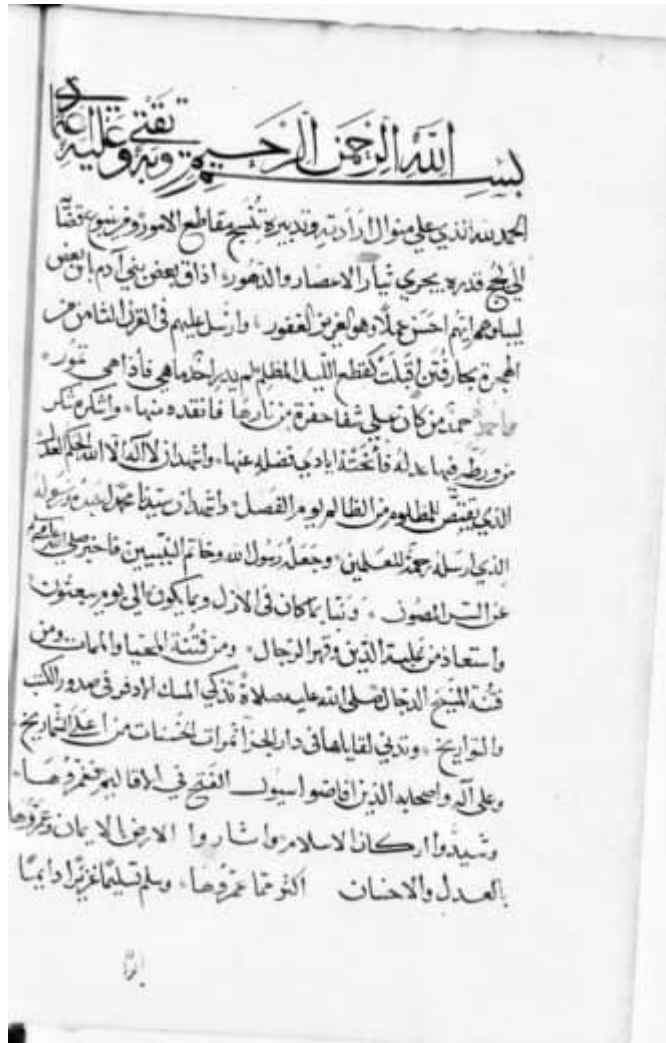 بسم الله الرحمن الرحيم وبه ثقتي وعليه اعتمادي
الحمد لله الذي علي منوال ارادته وتدبيره تنسج مقاطع الامور ومن ينبوع قضائه
الي لجج قدره يجري تيار الاعصار والدهور اذاق بعض بني آدم باس بعض
ليبلوهم ايهم احسن عملا وهو العزيز الغفور وارسل عليهم في القرن الثامن من
الهجرة بحار فتن اقبلت كقطع الليل المظلم لم يدر احد ما هي فأذا هي تمور
حمد من كان علي شفا حفرة من نارها فانقذه منها واشكره شكر
من ورط فيها عدله فأنجته ايادي فضله عنها واشهد ان لا اله الا الله الحكم العدل
الذي يقتص للمظلوم من الظالم يوم الفصل واشهد ان سيدنا محمدا عبده ورسوله
الذي ارسله رحمة للعلمين وجعله رسول الله وخاتم النبيين فاخبر صلي الله عليه وسلم
عن السر المصون ونبا بما كان في الازل وبما يكون الي يوم يبعثون
واستعاذ من غلبة الدين وقهر الرجال ومن فتنة المحيا والممات ومن
فتنة المسيح الدجال صلي الله عليه صلاة تذكي المسك الاذفر في صدور الكتب
والتواريخ وتدني لقايلها في دار الجزا ثمرات الحسنات من اعلا الشماريخ
وعلي آله واصحابه الذين افاضوا سيول الفتح في الاقاليم فغمروها
وشيدوا اركان الاسلام واثاروا الارض الايمان وعمروها
بالعدل والاحسان اكثر مما عمروها وسلم تسليما غزيرا دايما